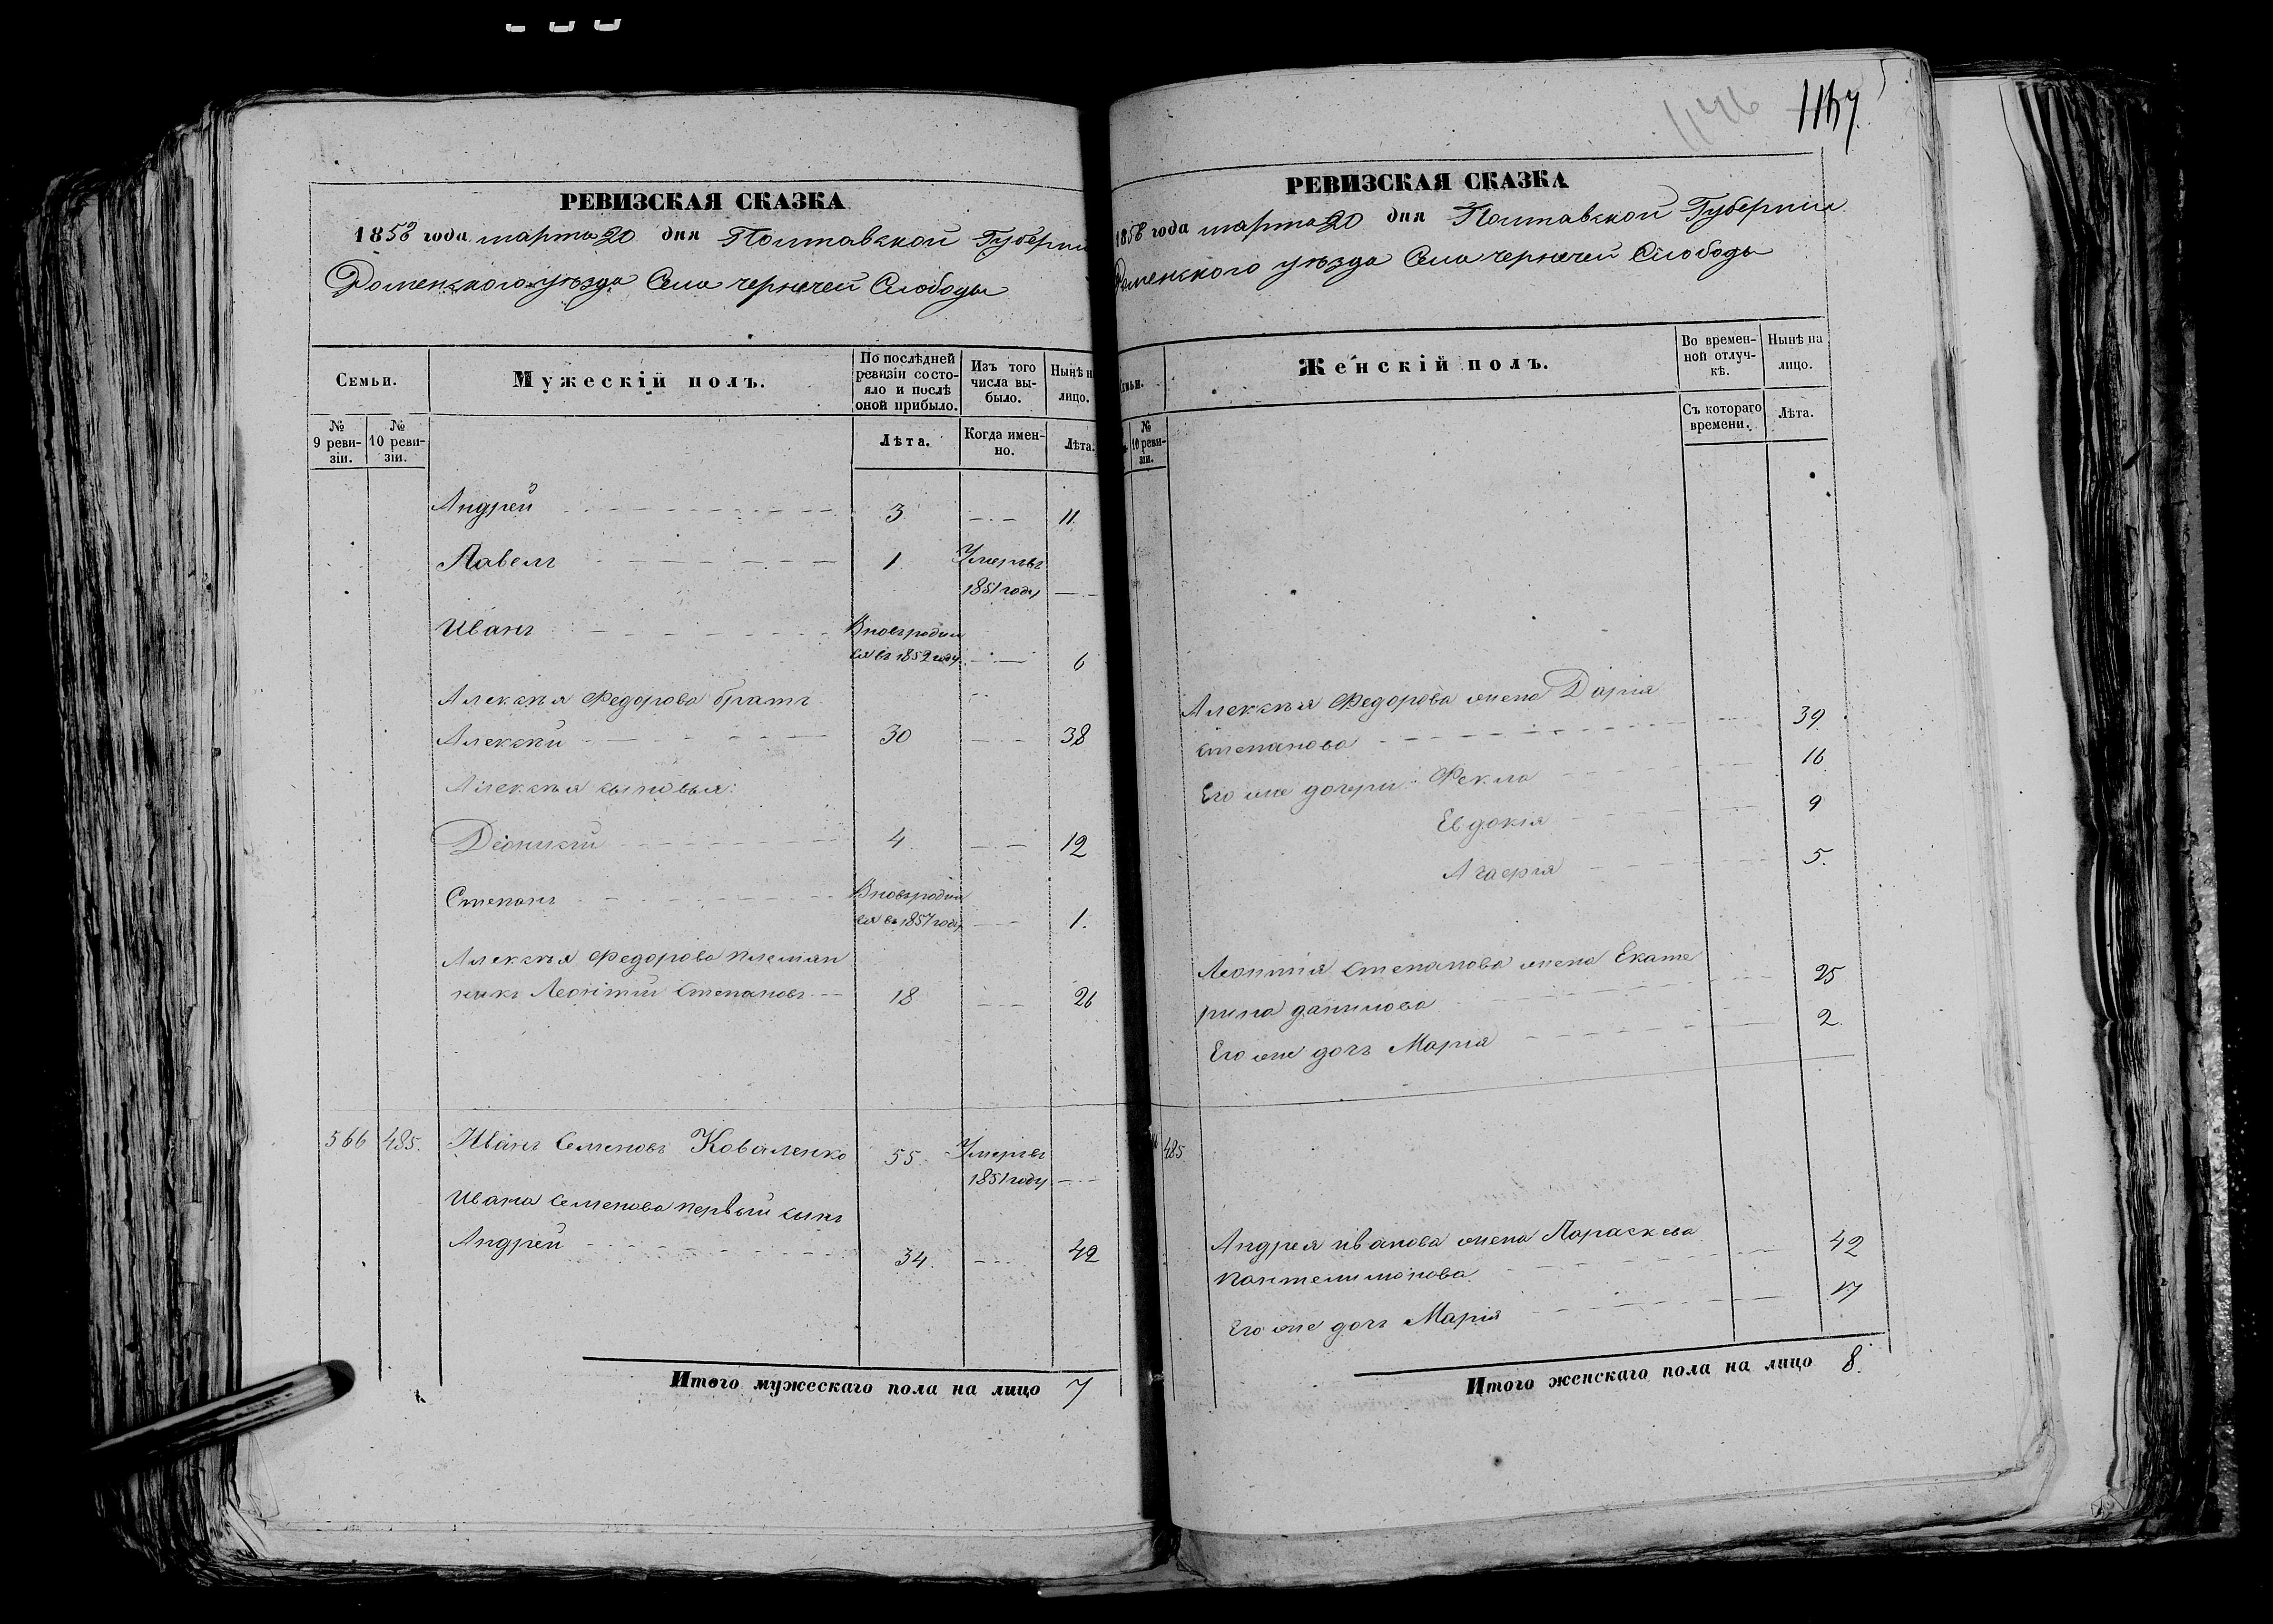 1146 1147
РЕВИЗСКАЯ СКАЗКА
1858 года марта 20 дня Полтавской Губерніи
Роменского уѣзда Села чернечей Слободы
Семьи.
№ 9 реви-зіи.
№ 10 реви-зіи.
Мужескій полъ.
По послѣдней ревизіи состо-яло и послѣ оной прибыло.
Лѣта.
Изъ того числа вы-было.
Когда имен-но.
Нынѣ н лицо.
Лѣта.
Андрей 3 11.
Павелъ 1. Умеръ въ
1851 году
Иванъ Вновьродил
ся въ 1852 году 6
Алексѣя Федорова братъ
Алексѣй 30 38
Алексѣя сыновья:
Діонисій 4 12
Степанъ Вновьродил
ся въ 1857 году 1.
Алексѣя Федорова племян
никъ Леонтій Степановъ 18 26
566 485. Иванъ Семеновъ Коваленко 55 Умеръ въ
1851 году
Ивана Семенова первый сынъ
Андрей 34. 42
Итого мужескаго пола на лицо 7
РЕВИЗСКАЯ СКАЗКА
1858 года марта 20 дня Полтавской Губерніи
Роменского уѣзда Села чернечей Слободы
№ 10 реви-зіи.
Женскій полъ.
Во времен-ной отлуч-кѣ.
Съ котораго времени.
Нынѣ на лицо.
Лѣта.
Алексѣя Федорова жена Дарія
Степанова 39.
Его же дочери: Фекла 16
Евдокія 9
Агафія 5.
Леонтія Степанова жена Екате
рина данилова 25
Его же дочь Марія 2.
485.
Андрея иванова жена Параскева
Пантелимонова 42
Его же дочь Марія 17
Итого женскаго пола на лицо 8.